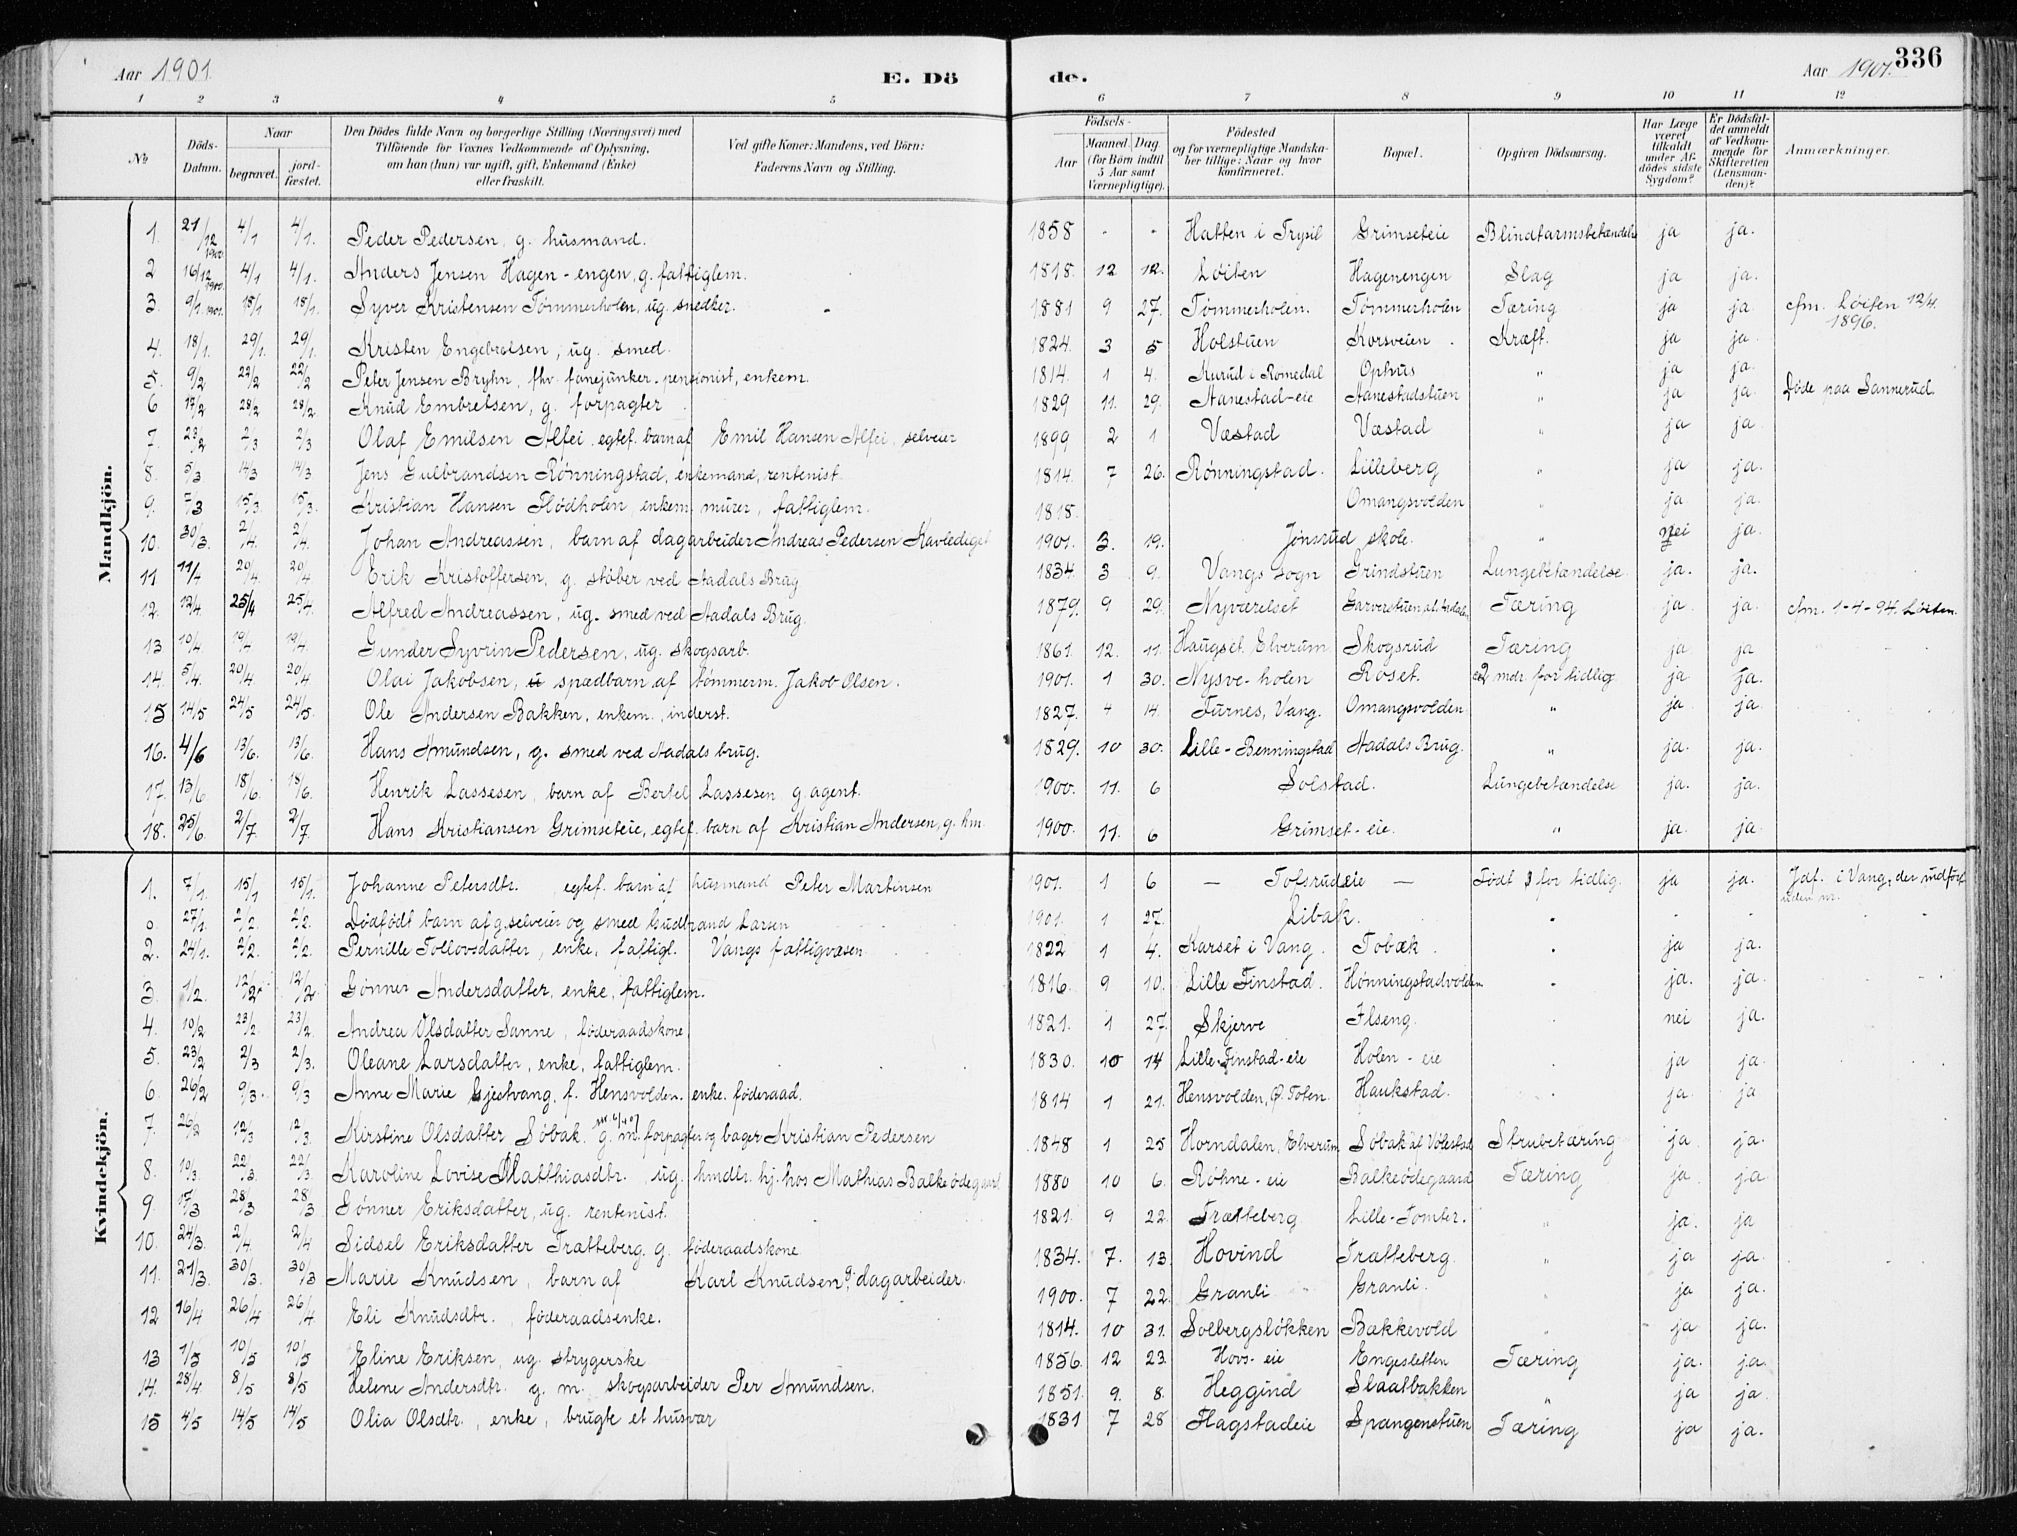 Aar 1901. E. Dö de. Aar 1901. 336
1 2 3 4 5 6 7 8 9 10 11 12
№ Döds-Datum. Naar begravet. jordfæstet. Den Dödes fulde Navn og borgerlige Stilling (Næringsvei) med Tilföiende for Voxnes Vedkommende af Oplysning, om han (hun) var ugift, gift, Enkemand (Enke) eller fraskilt. Ved gifte Koner: Mandens, ved Börn: Faderens Navn og Stilling. Födsels- Aar Maaned. Dag. (for Börn indtil 5 Aar samt Værnepligtige). Födested og for værnepligtige Mandskaber tillige: Naar og hvor konfirmeret. Bopæl. Opgiven Dödsaarsag. Har Læge været tilkaldt under Afdödes sidste Sygdom? Er Dödsfaldet anmeldt af Vedkommende for Skifteretten (Lensmanden)? Anmærkninger.
Mandkjön.
1. 21/12 1900. 4/1 4/1. Peder Pedersen, g. husmand. 1858 - - Hatten i Trysil Grimseteie Blindtarmsbetændelse ja ja.
2 16/12 1900. 4/1 4/1. Anders Jensen Hagen-engen, g. fattiglem. 1818. 12 12. Løiten Hagenengen Slag ja ja.
3. 9/1 1901. 15/1 15/1. Syver Kristensen Tømmerholen, ug. snedker. 1881 9 27. Tømmerholen. Tømmerholen Tæring ja ja cfm. Løiten 12/4. 1896.
4. 18/1. 29/1. 29/1. Kristen Engebretsen, ug. smed. 1824. 3 5 Holstuen Korsveien. Kræft. ja ja.
5. 9/2 22/2 22/2 Peter Jensen Bryhn, fhv. fanejunker-pensionist, enkem. 1814. 1 4. Kurud i Romedal Ophus " ja ja.
6 17/2 28/2 28/2. Knud Embretsen, g. forpagter 1829 11. 29. Aanestad-eie Aanestadstuen " ja ja. Døde paa Sannerud.
7. 23/2 2/3 2/3 Olaf Emilsen Alfei, egtef. barn af Emil Hansen Alfei, selveier 1899 2 1 Væstad Væstad " ja ja.
8. 5/3 14/3 14/3 Jens Gulbrandsen Rønningstad, enkemand, rentenist. 1814. 7 26. Rønningstad. Lilleberg " ja ja.
9. 7/3 15/3 15/3. Kristian Hansen Flødholen, enkem. murer, fattiglem. 1818. Omangsvolden " ja ja.
10. 30/3. 2/4. 2/4. Johan Andreassen, barn af dagarbeider Andreas Pedersen 1901. 3. 19. Jønsrud skole. " nei ja.
11 11/4 20/4. 20/4 Erik Kristoffersen, g. støber ved Aadals Brug 1834. 3 9. Vangs sogn Grindstuen Lungebetændelse. ja. ja.
12. 12/4 25/4 25/4. Alfred Andreassen, ug. smed ved Aadals Brug. 1879. 9 29. Nyværelset Tæring ja ja. cfm. 1-4-94. Løiten.
13 10/4 19/4. 19/4. Gunder Syvrin Pedersen, ug. skogsarb. 1861. 12. 11. Haugset, Elverum Skogsrud Tæring ja ja
14. 5/4. 20/4 20/4 Olai Jakobsen, spædbarn af tømmerm. Jakob Olsen. 1901. 1 30. Nysve-holen Roset. 2 mdr. for tidlig ja ja.
15 14/5 24/5 24/5. Ole Andersen Bakken, enkem., inderst. 1827. 4 14. Furnes, Vang. Omangsvolden " ja ja.
16. 4/6 13/6. 13/6. Hans Amundsen, g. smed ved Aadals brug. 1829. 10 30. Lille-Benningstad Aadals Brug. " ja. ja.
17. 13/6 18/6. 18/6. Henrik Lassesen, barn af Bertel Lassesen g. agent. 1900. 11. 6 Solstad. Lungebetændelse ja. ja.
18. 25/6. 2/7 2/7 Hans Kristiansen Grimseteie, egtef. barn af Kristian Andersen, g. hm. 1900. 11. 6 Grimset-eie. " ja. ja.
Kvindekjön.
1. 7/1. 15/1 15/1. Johanne Petersdtr. egtef. barn af husmand Peter Martinsen 1901. 1 6 — Tofsrudeie — Født 3 for tidlig. ja ja. Jdf. i Vang, der indført uden nr.
0 27/1. 2/2. 2/2. Dødfødt barn af g. selveier og smed Gudbrand Larsen 1901. 1 27. Libak. - - -
2. 24/1. 2/2. 2/2. Pernille Tollovsdatter, enke, fattigl. Vangs fattigvæsen 1822 1 4. Karset i Vang. Tobæk. ja ja.
3. 1/2. 12/2. 12/2 Gønner Andersdatter, enke, fattiglem. 1816. 9 10. Lille Finstad. Hønningstadvolden ja. ja.
4. 10/2 23/2 23/2. Andrea Olsdatter Sanne, føderaadskone. 1821. 1 27. Skjerve Ilseng. nei ja.
5. 23/2 2/3 2/3. Oleane Larsdatter, enke, fattiglem. 1830. 10 14 Lille-Finstad-eie Holen-eie ja ja.
6 26/2 9/3. 9/3 Anne Marie Gjestvang, f. Hensvolden, enke, føderaad. 1814 1 21. Hensvolden, Ø. Toten. Haukstad. ja. ja
7. 26/2 12/3 12/3. Kirstine Olsdatter Søbak. g. m. forpagter og bager Kristian Pedersen 1848 1 25 Horndalen, Elverum Søbak af Vølestad Strubetæring ja. ja.
8. 10/3. 22/3. 22/3 Karoline Lovise Matthiasdtr., ug. hmdtr. hj. hos Mathias Balkeødegaard 1880 10 6. Røhne-eie Balkeødegaard Tæring ja ja
9 17/3 28/3 28/3 Gønner Eriksdatter, ug. rentenist. 1821. 9 22. Trætteberg Lille-Tomter. " ja. ja
10. 24/3. 2/4. 2/4 Sidsel Eriksdatter Trætteberg, g. føderaadskone 1834. 7. 13. Hovind Trætteberg. " ja ja.
11. 21/3. 30/3. 30/3 Marie Knudsen, barn af Karl Knudsen, g. dagarbeider. 1900. 7 22. Granli Granli. ja ja.
12 16/4 26/4 26/4 Eli Knudsdtr., føderaadsenke. 1814. 10 31. Solbergsløkken Bækkevold " ja ja.
13 1/5 10/5 10/5 Eline Eriksen, ug. strygerske 1856. 12 23. Hovs-eie Engesletten Tæring ja. ja.
14. 28/4 8/5 8/5 Helene Andersdtr. g. m. skogsarbeider Per Amundsen. 1851. 9. 8. Heggind Slaatbakken " ja ja
15 4/5 14/5 14/5 Olia Olsdtr., enke, brugte et husvær 1831 7 28 Flagstadeie Spangenstuen Tæring ja ja.